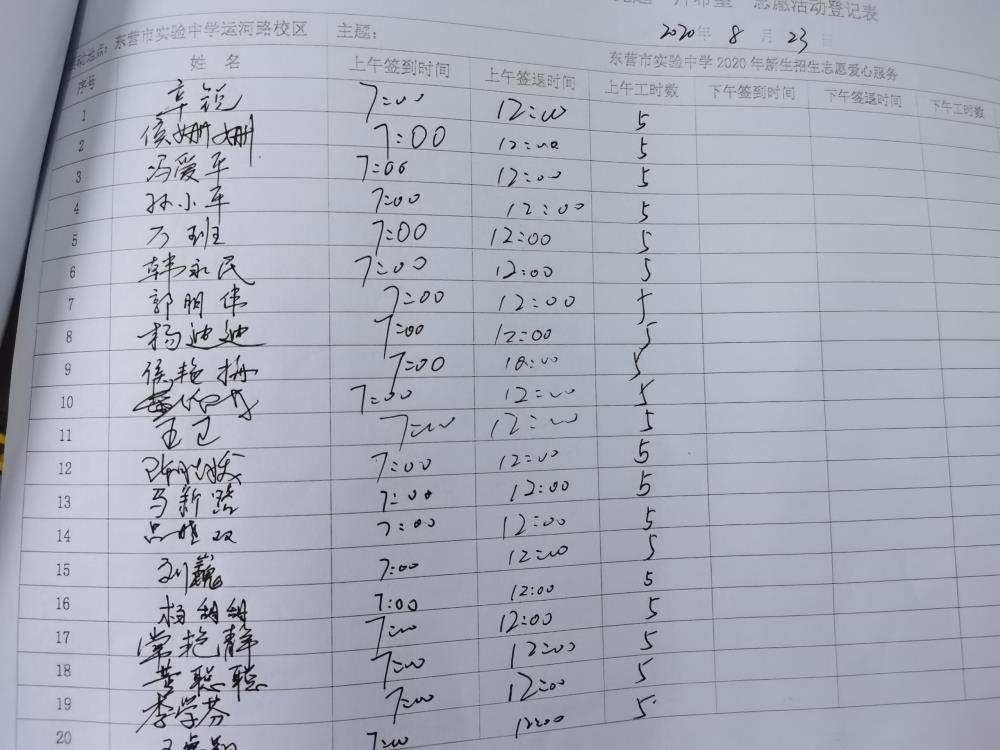 志愿活动登记表
2020年 8 月 23 日
活动地点：东营市实验中学运河路校区 主题：
东营市实验中学2020年新生招生志愿爱心服务
序号 姓 名 上午签到时间 上午签退时间 上午工时数 下午签到时间 下午签退时间 下午工时数
1 辛锐 7:00 12:00 5
2 侯姗姗 7:00 12:00 5
3 冯爱平 7:00 12:00 5
4 孙小平 7:00 12:00 5
5 万班 7:00 12:00 5
6 韩永民 7:00 12:00 5
7 郭明伟 7:00 12:00 5
8 杨迪迪 7:00 12:00 5
9 侯艳梅 7:00 12:00 5
10 7:00 12:00 5
11 王卫 7:00 12:00 5
12 7:00 12:00 5
13 马新蕊 7:00 12:00 5
14 吕双 7:00 12:00 5
15 刘巍 7:00 12:00 5
16 杨甜甜 7:00 12:00 5
17 常艳静 7:00 12:00 5
18 黄聪聪 7:00 12:00 5
19 李学芬 7:00 12:00 5
20 7:00 12:00 5